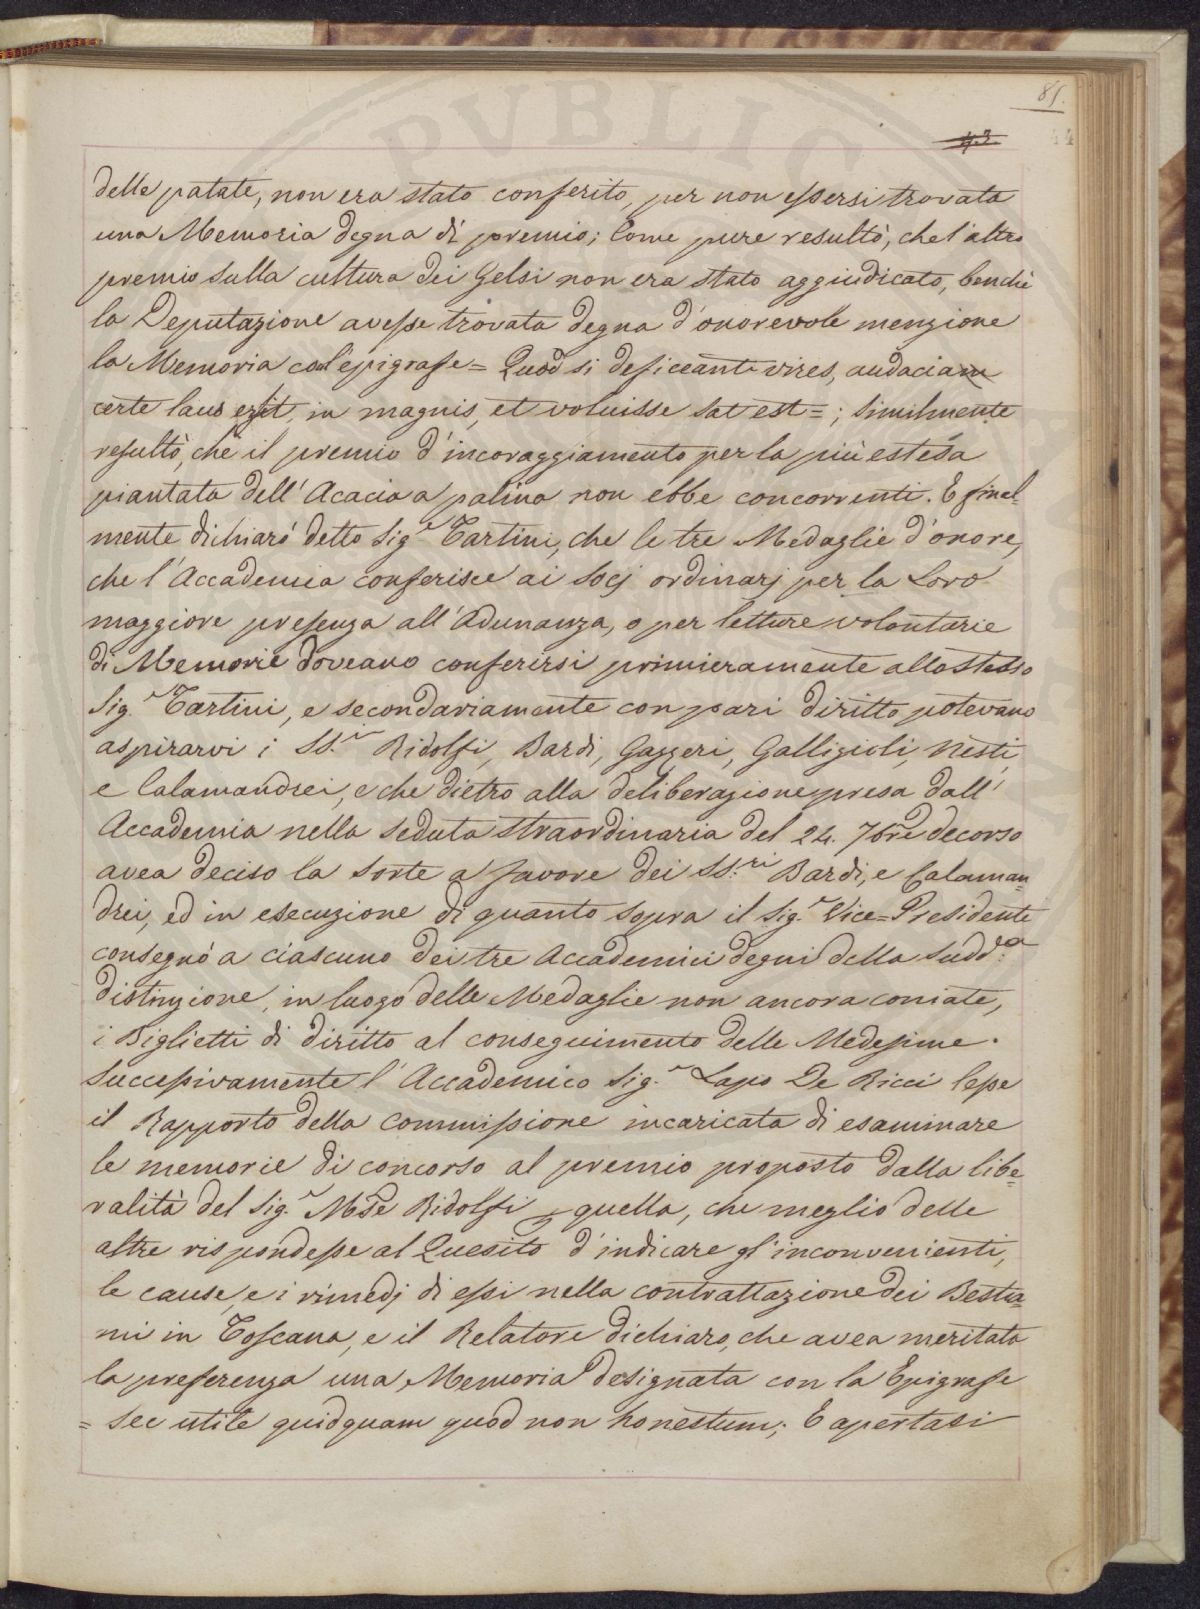 85.
43
44
delle patate, non era stato conferito, per non essersi trovata
una Memoria degna di premio; Come pure resultò, che l'altro
premio sulla cultura dei Gelsi non era stato aggiudicato, benchè
la Deputazione avesse trovata degna d'onorevole menzione
la Memoria coll'epigrafe = Quod si deficeant vires, audaciam
certe laus erit, in magnis, et voluisse sat est = ; Similmente
resultò, che il premio d'incoraggiamento per la più estesa
piantata dell'Acacia a palina non ebbe concorrenti. E final-
mente dichiarò detto Sig.r Tartini, che le tre Medaglie d'onore,
che l'Accademia conferisce ai Socj ordinarj per la Loro
maggiore presenza all'Adunanza, o per letture volontarie
di Memorie doveano conferirsi primieramente allo stesso
Sig.r Tartini, e secondariamente con pari diritto potevano
aspirarvi i SS.ri Ridolfi, Bardi, Gazzeri, Galligioli, Nesti,
e Calamandrei, e che dietro alla deliberazione presa dall'
Accademia nella Seduta straordinaria del 24. 7bre decorso
avea deciso la sorte a favore dei SS.ri Bardi, e Calaman=
drei, ed in esecuzione di quanto sopra il Sig.r Vice=Presidente
consegnò a ciascuno dei tre Accademici degni della Sudd.ta
distinzione, in luogo delle Medaglie non ancora coniate,
i Biglietti di diritto al conseguimento delle Medesime.
Successivamente l'Accademico Sig.r Lapo De Ricci lesse
il Rapporto della Commissione incaricata di esaminare
le memorie di concorso al premio proposto dalla libe=
ralità del Sig.r Mse Ridolfi p quella, che meglio delle
altre rispondesse al Quesito d'indicare gl'inconvenienti,
le cause, e i rimedj di essi nella contrattazione dei Bestia=
mi in Toscana, e il Relatore dichiaro, che avea meritato
la preferenza una Memoria designata con la Epigrafe
= Sec utile quidquam quod non honestum; E apertasi